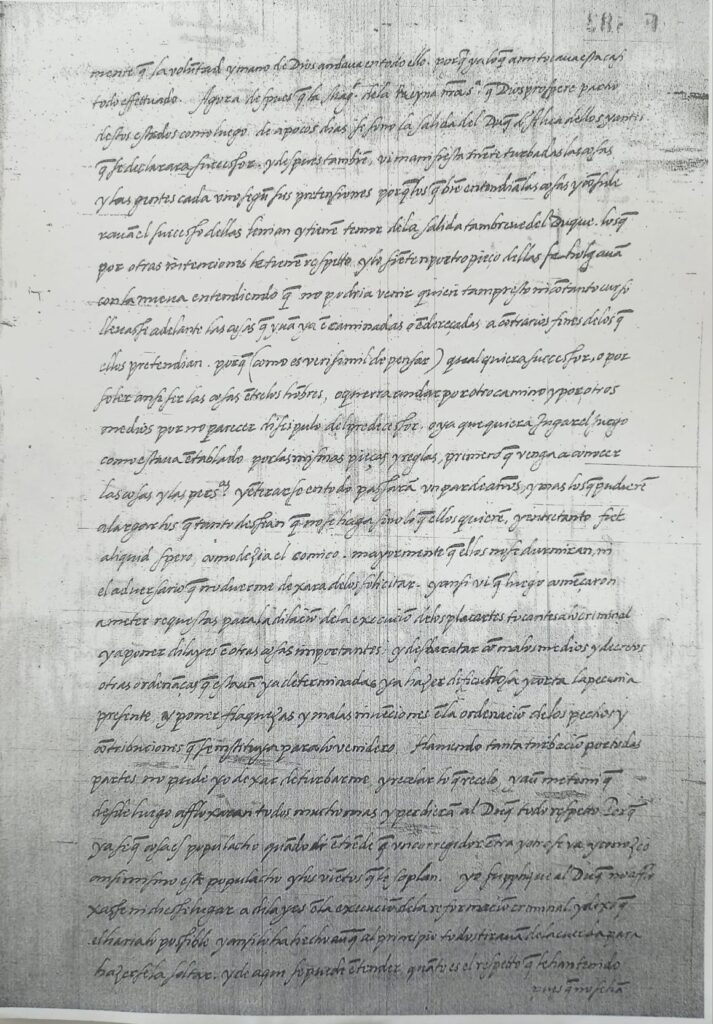 mente q̃ la voluntad y mano de Dios andava en todo ello. porq̃ ya lo q̃ a mi tocava esta casi
todo effettuado. Agora despues q̃ la Mag.ᵈ de la Reyna nr̃a s.ᵃ q̃ Dios prospere pario
destos estados como luego de a pocos dias se sono la salida del Duq̃ d'Alva dellos y antes
q̃ se declarara successor. y despues tambien, vi manifiestam̃ete turbadas las cosas
y las gentes cada uno segũ sus pretensiones porq̃ los q̃ biẽ entendiã las cosas y cõside
ravã el successo dellas tenian y tienẽ temor de la salida tam breve del Duque. los q̃
por otras intenciones le tienẽ respetto y lo sientẽ por tropieço dellas se holgavã
con la nueva entendiendo q̃ no podria venir quien tam presto ni cõ tanto curso
llevasse adelante las cosas q̃ yvã ya ẽcaminadas o ẽdereçadas a cõtrarios fines de los q̃
ellos pretendian. porq̃ (como es verisimil de pensar) qualquiera successor, o por
soler ansi ser las cosas ẽtre los hõbres, o querra andar por otro camino y por otros
medios por no parecer discipulo del predecessor. o ya que quiera jugar el juego
como estava ẽtablado por las mismas pieças y reglas, primero q̃ venga a conocer
las cosas y las pers.ᵃˢ y ẽterarse en todo passarã un par de años, y mas los q̃ pudierẽ
alargar los q̃ tanto dessean q̃ no se haga sino lo q̃ ellos quierẽ, y entretanto fiet
aliquid spero, como dezia el comico. mayormente q̃ ellos no se durmiran, ni
el adversario q̃ no duerme dexara de los solicitar. y ansi vi q̃ luego comẽçaron
a meter requestas para la dilaciõ de la execuciõ de los placartes tocantes a lo criminal
y a poner dilayes ẽ otras cosas importantes, y desbaratar cõ malos medios y decretos
otras ordenãças q̃ estavã ya determinadas y a hazer dificultosa y corta la pecunia
presente, y poner flaquezas y malas invẽciones ẽ la ordenaciõ de los pechos y
cõtribuciones q̃ se instituya para lo venidero. Haviendo tanta turbaciõ por todas
partes no puede yo dexar de turbarme y recelar lo q̃ recelo, y aũ me temi q̃
desde luego affloxaran todos mucho mas y perdieran al Duq̃ todo respetto Porq̃
ya se q̃ cosa es populacho quãdo ẽtiẽde q̃ un corregidor ẽtra y otro se va y conozco
ansimismo este populacho y los viẽtos q̃ le soplan. yo suppliq̃ue al Duq̃ no afflo
xasse ni diesse lugar a dilayes ẽ la execuciõ de la reformaciõ criminal. y dixo q̃
el haria lo possible y ansi lo ha hecho aunq̃ al principio todos tiravã de la cuerda para
hazersela soltar. y de aqui se puede ẽtender quãto es el respetto q̃ le han tenido
pues q̃ no se hã